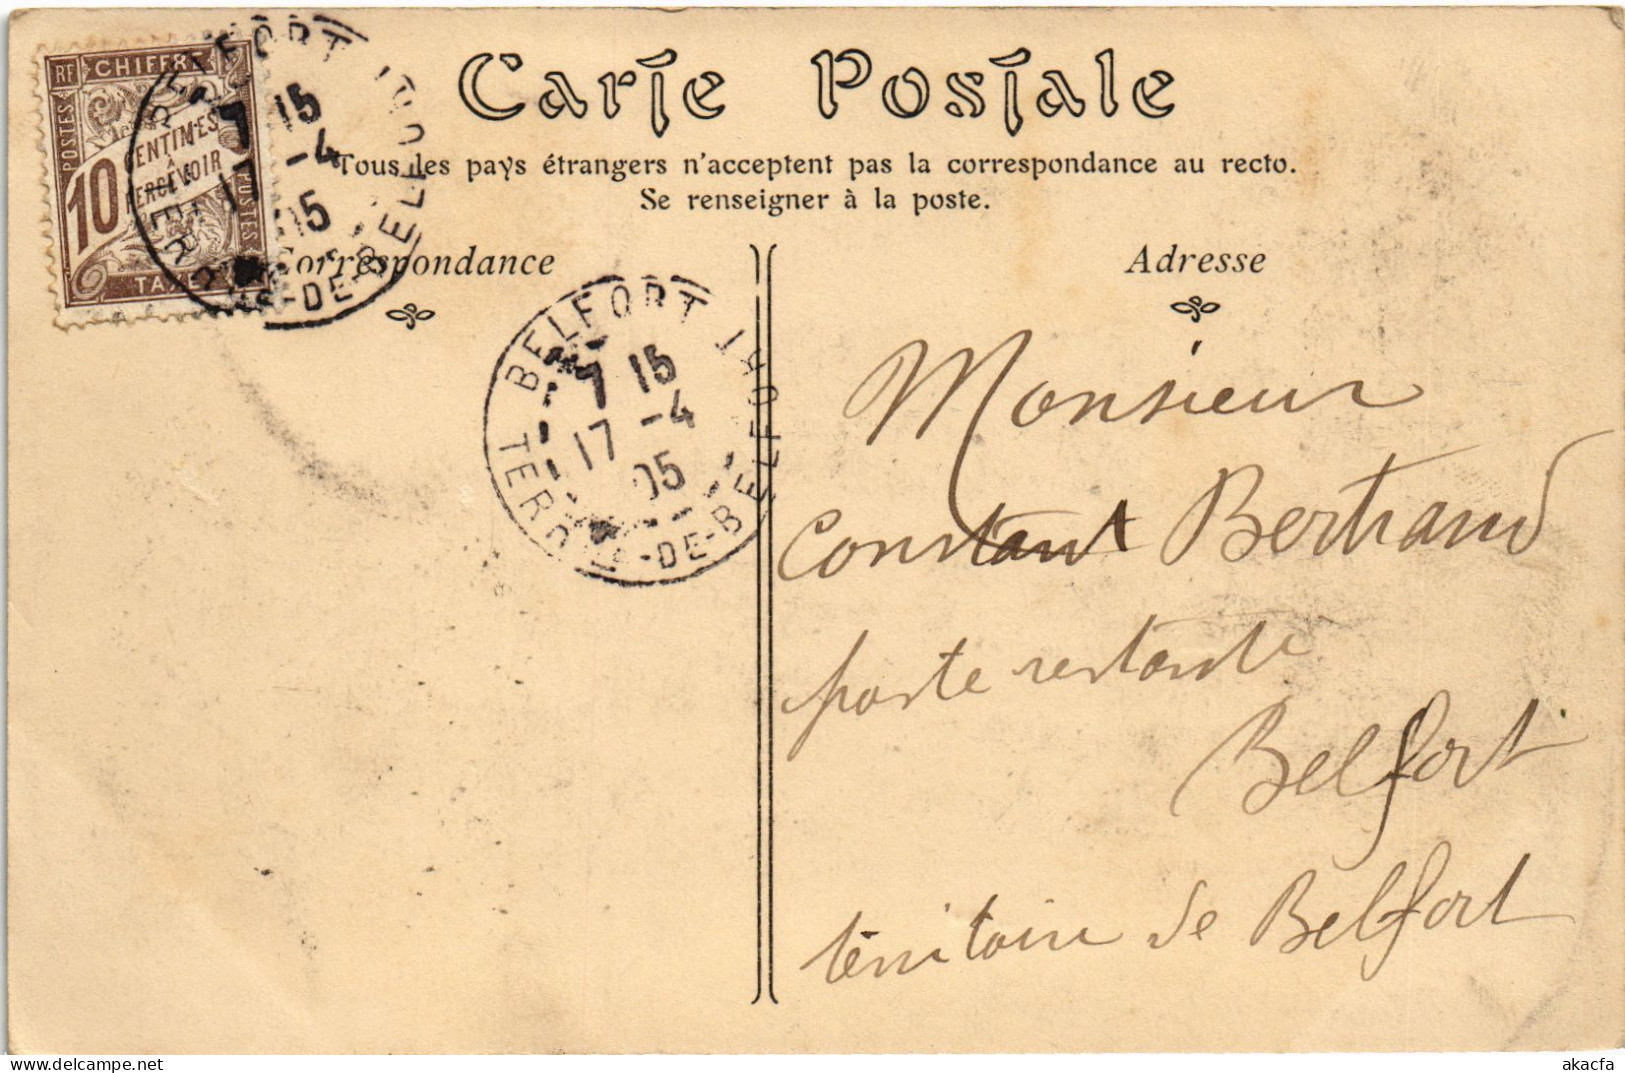 Carte Postale
Tous les pays étrangers n'acceptent pas la correspondance au recto.
Se renseigner à la poste.
RF CHIFFRE
POSTES
10 CENTIMES
À
PERCEVOIR
POSTES
TAXE
BELFORT
7 15
17 -4
05
TERRRE-DE-BELFORT
Correspondance
BELFORT
7 15
17 -4
05
TERRRE-DE-BELFORT
Adresse
Monsieur
Constant Bertrand
poste restante
Belfort
térritoire de Belfort
akacfa